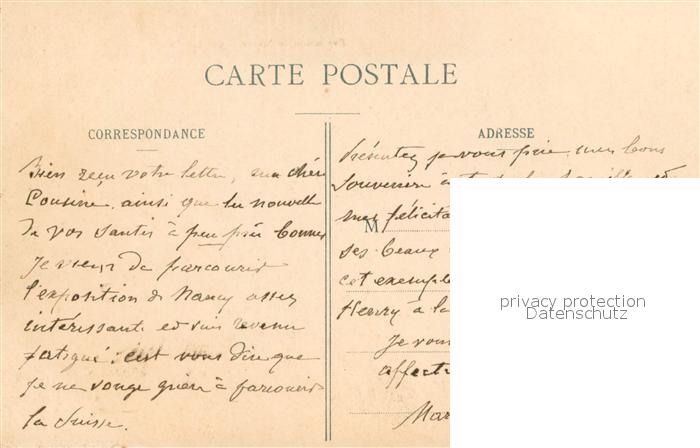 CARTE POSTALE
CORRESPONDANCE
Bien reçu votre lettre, ma chère
Cousine, ainsi que les nouvelles
de vos santés à peu près bonnes
Je viens de parcourir
l'exposition de Nancy assez
intéressante et suis revenu
fatigué : c'est vous dire que
je ne songe guère à parcourir
la Suisse.
ADRESSE
Présentez je vous prie mes bons
souvenirs à
M
mes félicita
ses beaux
cet exemple
Henry à la
Je vous
affect
Mar
privacy protection
Datenschutz